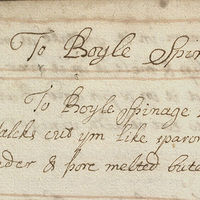 To Boyle Spin
To Boyle spinage
stalcks cut ym like sparon
& pore melted buta